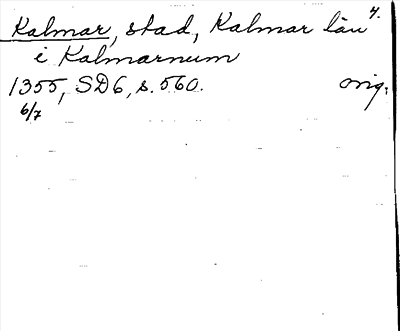 4.
Kalmar, stad, Kalmar län
i Kalmarnum
1355, SD6, s. 560. orig.
6/7